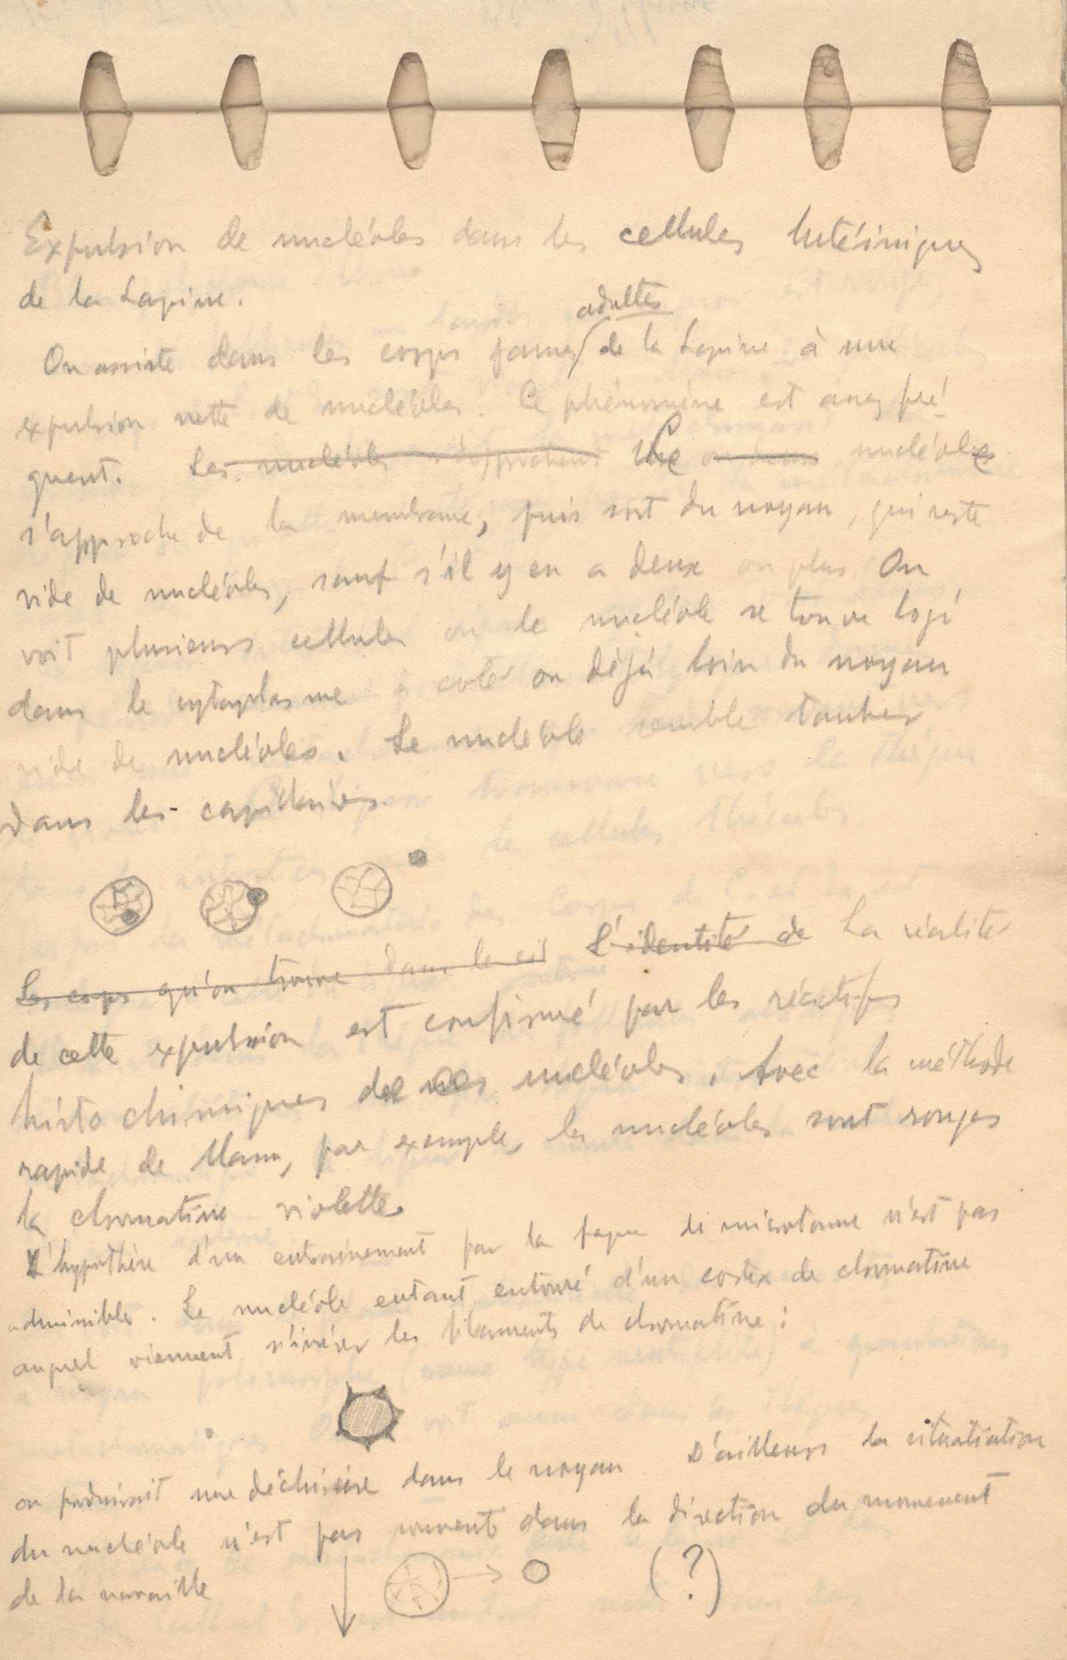 Expulsion de nucléoles dans les cellules lutéiniques
de la Lapine.
adultes
On assiste dans les corps jaunes de la Lapine à une
expulsion nette de nucléoles. Ce phénomène est assez fré
quent. Les nucléoles s'approchent Un nucléole
s'approche de la membrane, puis sort du noyau, qui reste
vide de nucléoles, sauf s'il y en a deux ou plus On
voit plusieurs cellules où le nucléole se trouve logé
dans le cytoplasme à coté ou déjà loin du noyau
vide de nucléoles. Le nucléole semble tomber
dans les capillaires
Les corps qu'on trouve dans le L'identité de La réalité
de cette expulsion est confirmé par les réactifs
histochimiques de nucléoles. Avec la méthode
rapide de Mann, par exemple, les nucléoles sont rouges
la chromatine violette.
L'hypothèse d'un entrainement par la façon de microtome n'est pas
admissibles. Le nucléole entant entouré d'un cortex de chromatine
auquel viennent s'insérer les filaments de chromatine:
on produirait une déchirure dans le noyau D'ailleurs la situatiation
du nucléole n'est pas souvent dans la direction du mouvement
de la muraille (?)